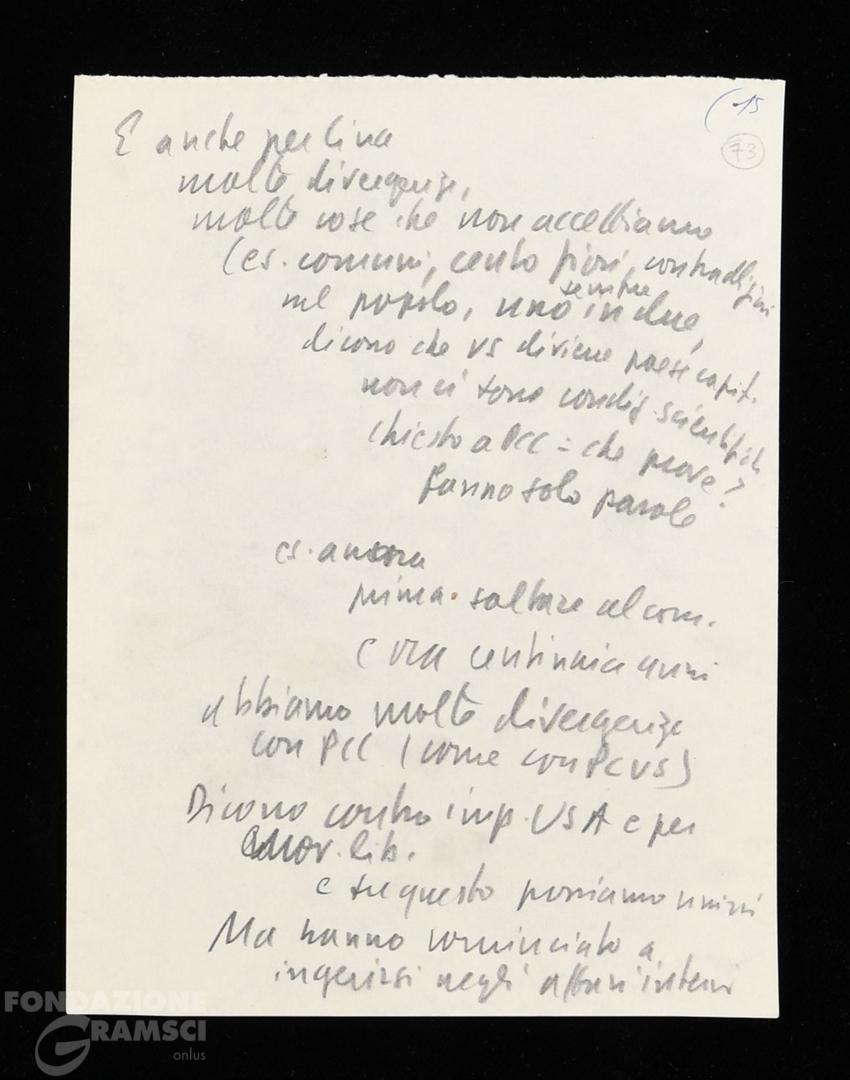 (15
73
E anche per Cina
molte divergenze,
molte cose che non accettiamo
(es. comuni, cento fiori, contradizioni
nel popolo, uno sempre in due,
dicono che US diviene paese capit.
non ci sono condiz. scientifiche
chiesto a PCC = che prove?
fanno solo parole
es. ancora
prima saltare al com.
e ora centinaia anni
abbiamo molte divergenze
con PCC (come con PCUS)
Dicono contro imp. USA e per
mov. lib.
e su questo possiamo unirci
Ma hanno cominciato a
ingerirsi negli affari interni
FONDAZIONE
GRAMSCI
onlus